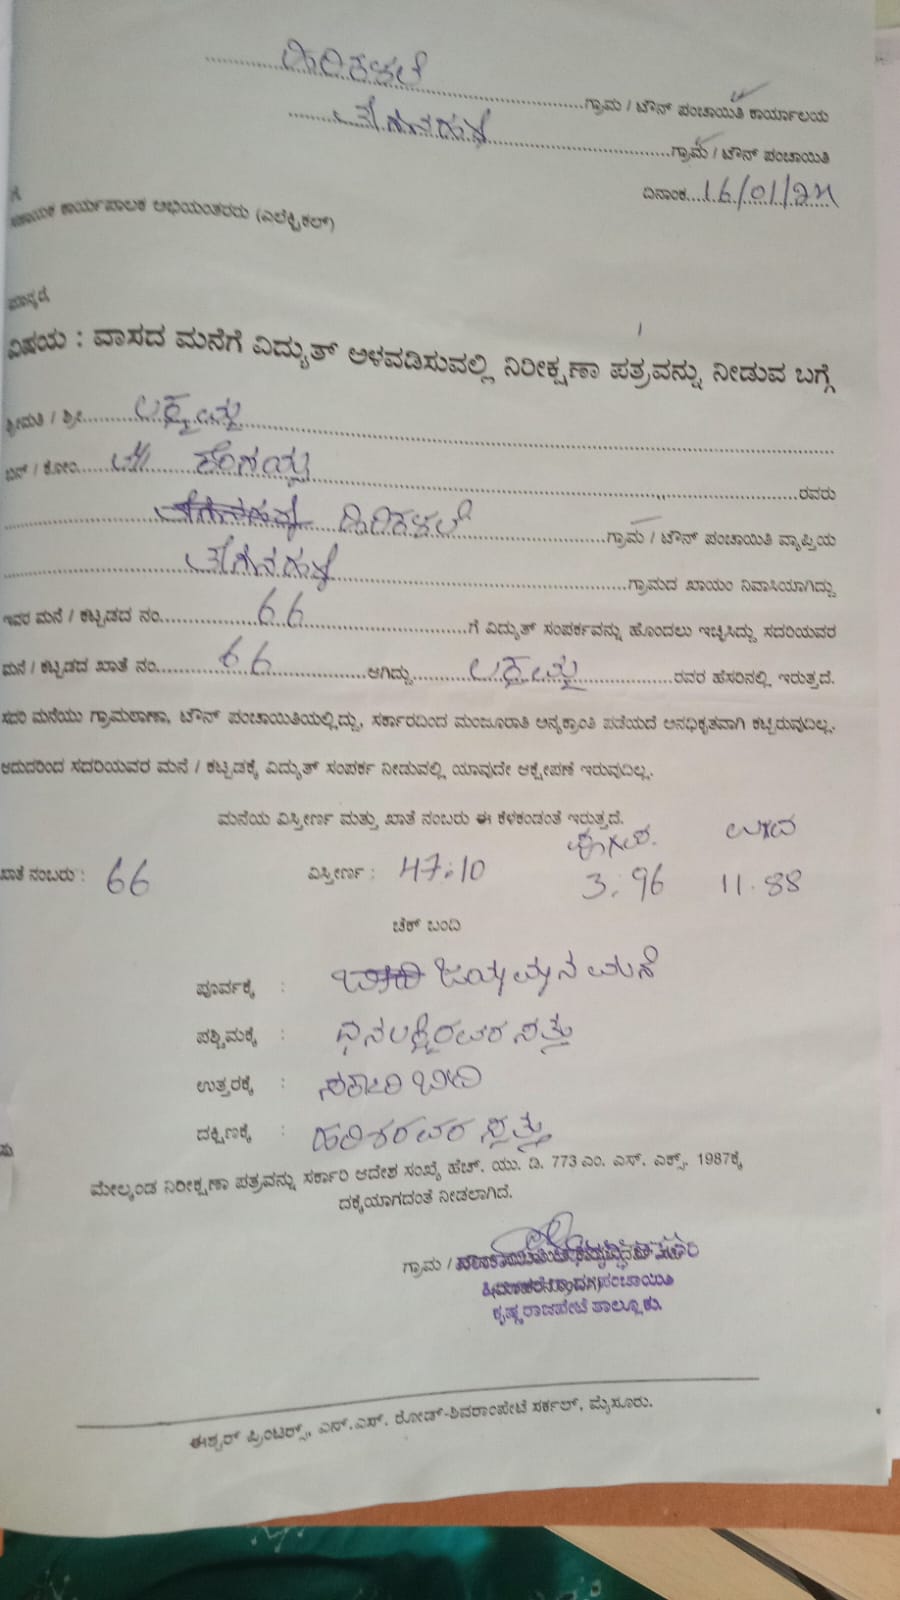 ಹಿರಿಕಳಲೆ ಗ್ರಾಮ / ಟೌನ್ ಪಂಚಾಯಿತಿ ಕಾರ್ಯಾಲಯ
ಗ್ರಾಮ / ಟೌನ್ ಪಂಚಾಯಿತಿ
ದಿನಾಂಕ...16/01/25
ಗೆ
ಕಾರ್ಯಪಾಲಕ ಅಭಿಯಂತರರು (ಎಲೆಕ್ಟ್ರಿಕಲ್)
ಮಾನ್ಯರೆ,
ವಿಷಯ : ವಾಸದ ಮನೆಗೆ ವಿದ್ಯುತ್ ಅಳವಡಿಸುವಲ್ಲಿ ನಿರೀಕ್ಷಣಾ ಪತ್ರವನ್ನು ನೀಡುವ ಬಗ್ಗೆ
ಶ್ರೀಮತಿ / ಶ್ರೀ ಲಕ್ಷ್ಮಮ್ಮ
ಬಿನ್ / ಕೋಂ ರಂಗಯ್ಯ ರವರು
ಹಿರಿಕಳಲೆ ಗ್ರಾಮ / ಟೌನ್ ಪಂಚಾಯಿತಿ ವ್ಯಾಪ್ತಿಯ
ಗ್ರಾಮದ ಖಾಯಂ ನಿವಾಸಿಯಾಗಿದ್ದು
ಇವರ ಮನೆ / ಕಟ್ಟಡದ ನಂ. 66 ಗೆ ವಿದ್ಯುತ್ ಸಂಪರ್ಕವನ್ನು ಹೊಂದಲು ಇಚ್ಛಿಸಿದ್ದು ಸದರಿಯವರ
ಮನೆ / ಕಟ್ಟಡದ ಖಾತೆ ನಂ. 66 ಆಗಿದ್ದು ಲಕ್ಷ್ಮಮ್ಮ ರವರ ಹೆಸರಿನಲ್ಲಿ ಇರುತ್ತದೆ.
ಸದರಿ ಮನೆಯು ಗ್ರಾಮಠಾಣಾ, ಟೌನ್ ಪಂಚಾಯಿತಿಯಲ್ಲಿದ್ದು, ಸರ್ಕಾರದಿಂದ ಮಂಜೂರಾತಿ ಅನ್ಯಕ್ರಾಂತಿ ಪಡೆಯದೆ ಅನಧಿಕೃತವಾಗಿ ಕಟ್ಟಿರುವುದಿಲ್ಲ.
ಆದುದರಿಂದ ಸದರಿಯವರ ಮನೆ / ಕಟ್ಟಡಕ್ಕೆ ವಿದ್ಯುತ್ ಸಂಪರ್ಕ ನೀಡುವಲ್ಲಿ ಯಾವುದೇ ಆಕ್ಷೇಪಣೆ ಇರುವುದಿಲ್ಲ.
ಮನೆಯ ವಿಸ್ತೀರ್ಣ ಮತ್ತು ಖಾತೆ ನಂಬರು ಈ ಕೆಳಕಂಡಂತೆ ಇರುತ್ತದೆ.
ಉದ್ದ
ಖಾತೆ ನಂಬರು : 66 ವಿಸ್ತೀರ್ಣ : 47.10 3.96 11.88
ಚೆಕ್ ಬಂದಿ
ಪೂರ್ವಕ್ಕೆ : ಜಯಮ್ಮನ ಮನೆ
ಪಶ್ಚಿಮಕ್ಕೆ : ಧನಲಕ್ಷ್ಮಿರವರ ಸ್ವತ್ತು
ಉತ್ತರಕ್ಕೆ : ಸರ್ಕಾರಿ ಬೀದಿ
ದಕ್ಷಿಣಕ್ಕೆ : ಹರಿಶರವರ ಸ್ವತ್ತು
ಮೇಲ್ಕಂಡ ನಿರೀಕ್ಷಣಾ ಪತ್ರವನ್ನು ಸರ್ಕಾರಿ ಆದೇಶ ಸಂಖ್ಯೆ ಹೆಚ್. ಯು. ಡಿ. 773 ಎಂ. ಎಸ್. ಎಕ್ಸ್. 1987ಕ್ಕೆ
ದಕ್ಕೆಯಾಗದಂತೆ ನೀಡಲಾಗಿದೆ.
ಗ್ರಾಮ /
ಪಂಚಾಯಿತಿ
ಕೃಷ್ಣರಾಜಪೇಟೆ ತಾಲ್ಲೂಕು.
ಈಶ್ವರ್ ಪ್ರಿಂಟರ್ಸ್, ಎನ್.ಎಸ್. ರೋಡ್-ಶಿವರಾಂಪೇಟೆ ಸರ್ಕಲ್, ಮೈಸೂರು.